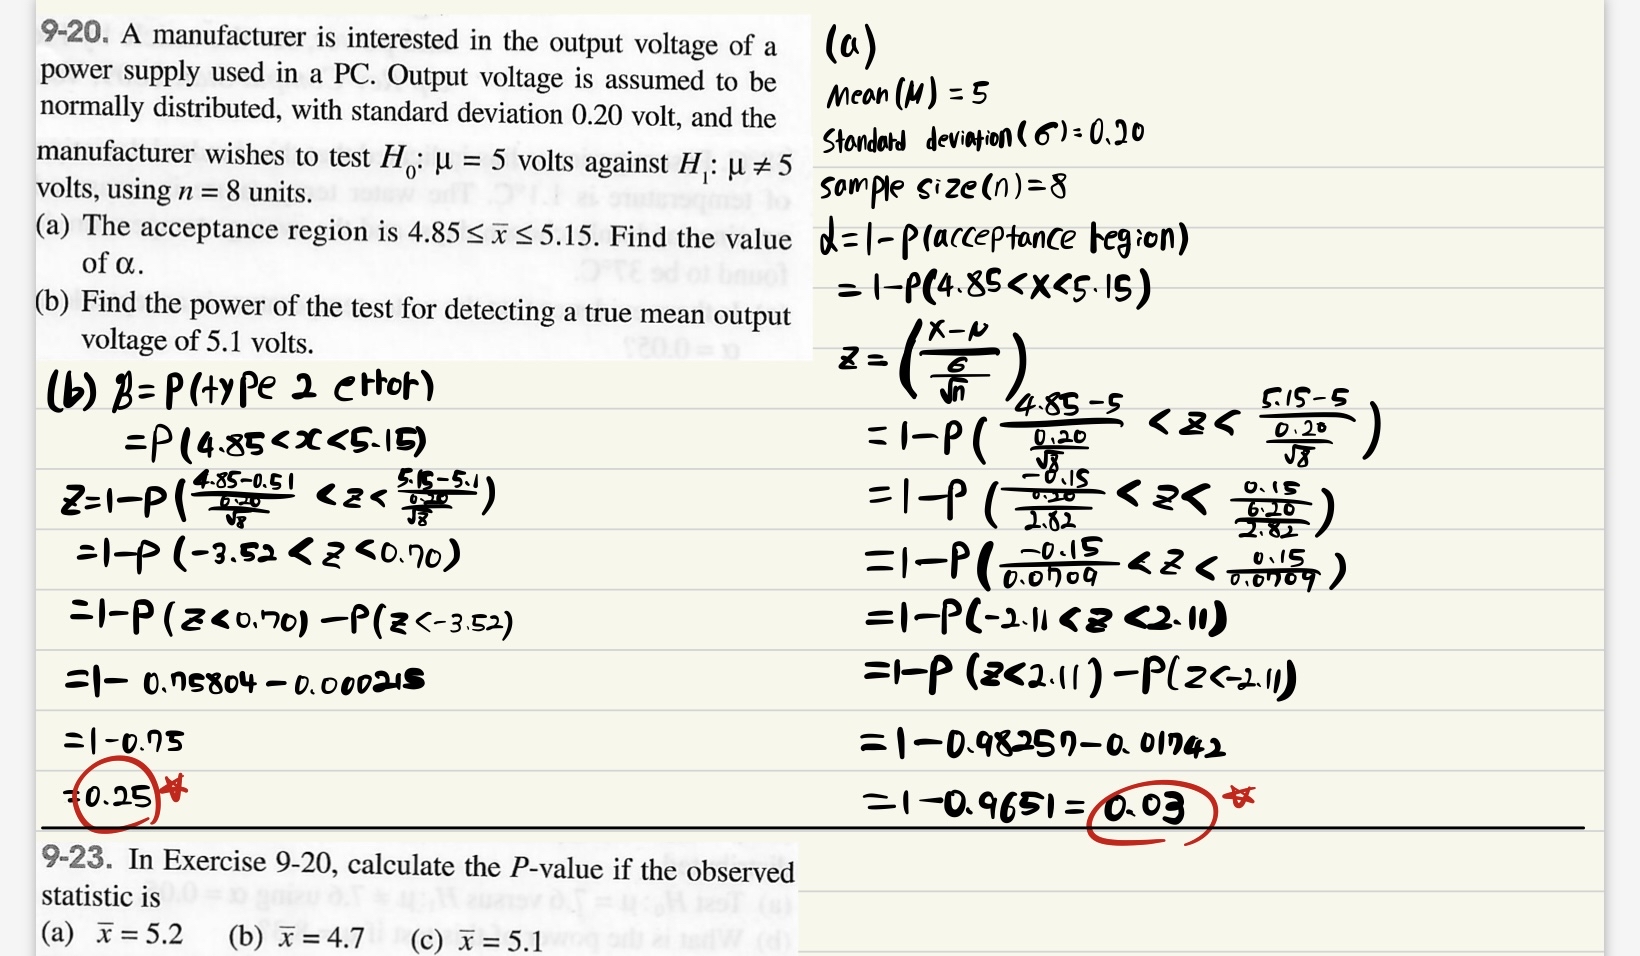 9-20. A manufacturer is interested in the output voltage of a
power supply used in a PC. Output voltage is assumed to be
normally distributed, with standard deviation 0.20 volt, and the
manufacturer wishes to test H₀: μ = 5 volts against H₁: μ ≠ 5
volts, using n = 8 units.
(a) The acceptance region is 4.85 ≤ x̄ ≤ 5.15. Find the value
of α.
(b) Find the power of the test for detecting a true mean output
voltage of 5.1 volts.
(b) β = P(type 2 error)
= P(4.85 < x < 5.15)
Z = 1 - P((4.85-0.51)/(0.20/√8) < z < (5.15-5.1)/(0.20/√8))
= 1 - P(-3.52 < z < 0.70)
= 1 - P(z < 0.70) - P(z < -3.52)
= 1 - 0.75804 - 0.000215
= 1 - 0.75
= 0.25
(a)
Mean (M) = 5
Standard deviation (σ) = 0.20
sample size (n) = 8
α = 1 - P(acceptance region)
= 1 - P(4.85 < x < 5.15)
z = ((x - μ)/(σ/√n))
= 1 - P((4.85-5)/(0.20/√8) < z < (5.15-5)/(0.20/√8))
= 1 - P((-0.15)/(0.20/2.82) < z < (0.15)/(0.20/2.82))
= 1 - P(-0.15/0.0709 < z < 0.15/0.0709)
= 1 - P(-2.11 < z < 2.11)
= 1 - P(z < 2.11) - P(z < -2.11)
= 1 - 0.98257 - 0.01742
= 1 - 0.9651 = 0.03
9-23. In Exercise 9-20, calculate the P-value if the observed
statistic is
(a) x̄ = 5.2 (b) x̄ = 4.7 (c) x̄ = 5.1